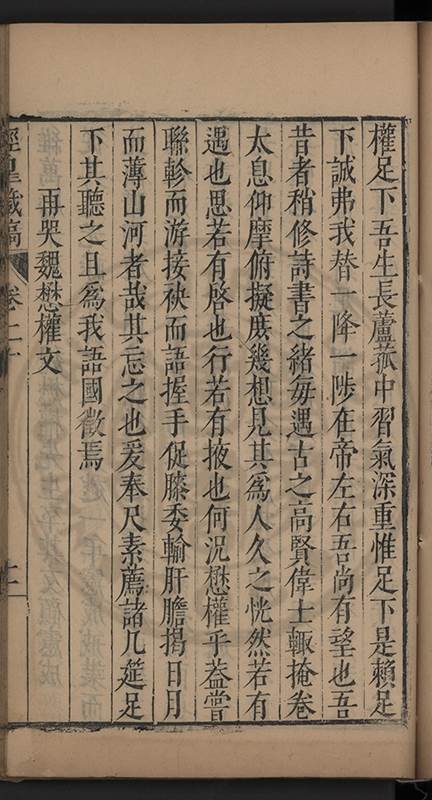 權足下吾生長蘆菰中習氣深重惟足下是賴足
下誠弗我替一降一陟在帝左右吾尚有望也吾
昔者稍修詩書之緒每遇古之高賢偉士輒掩卷
太息仰摩俯擬庶幾想見其爲人久之恍然若有
遇也思若有啓也行若有掖也何況懋權乎葢嘗
聯軫而游接袂而語握手促膝委輸肝膽揭日月
而薄山河者哉其忘之也爰奉尺素薦諸几筵足
下其聽之且爲我語國徵焉
再哭魏懋權文
涇皐藏稿
卷二十
二